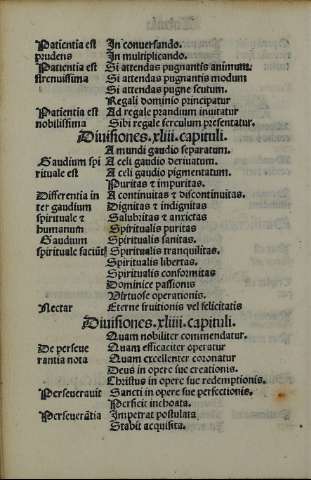 Patientia est In conversando.
prudens In multiplicando.
Patientia est Si attendas pugnantis animum.
strenuissima Si attendas pugnantis modum
Si attendas pugne scutum.
Regali dominio principatur
Patientia est Ad regale prandium inuitatur
nobilissima Sibi regale ferculum presentatur.
Diuisiones .xliii. capituli.
A mundi gaudio separatum.
Gaudium spi A celi gaudio deriuatum.
rituale est A celi gaudio pigmentatum.
Puritas ⁊ impuritas.
Differentia in A continuitas ⁊ discontinuitas.
ter gaudium Dignitas ⁊ indignitas
spirituale ⁊ Salubritas ⁊ anxietas
humanum Spiritualis puritas
Gaudium Spiritualis sanitas.
spirituale faciūt Spiritualis tranquilitas.
Spiritualis libertas.
Spiritualis conformitas
Dominice passionis
Virtuose operationis.
Nectar Eterne fruitionis vel felicitatis
Diuisiones .xliiii. capituli.
Quam nobiliter commendatur.
De perseue Quam efficaciter operatur
rantia nota Quam excellenter coronatur
Deus in opere sue creationis.
Christus in opere sue redemptionis.
Perseuerauit Sancti in opere sue perfectionis.
Perficit inchoata.
Perseuerātia Impetrat postulata
Stabit acquisita.